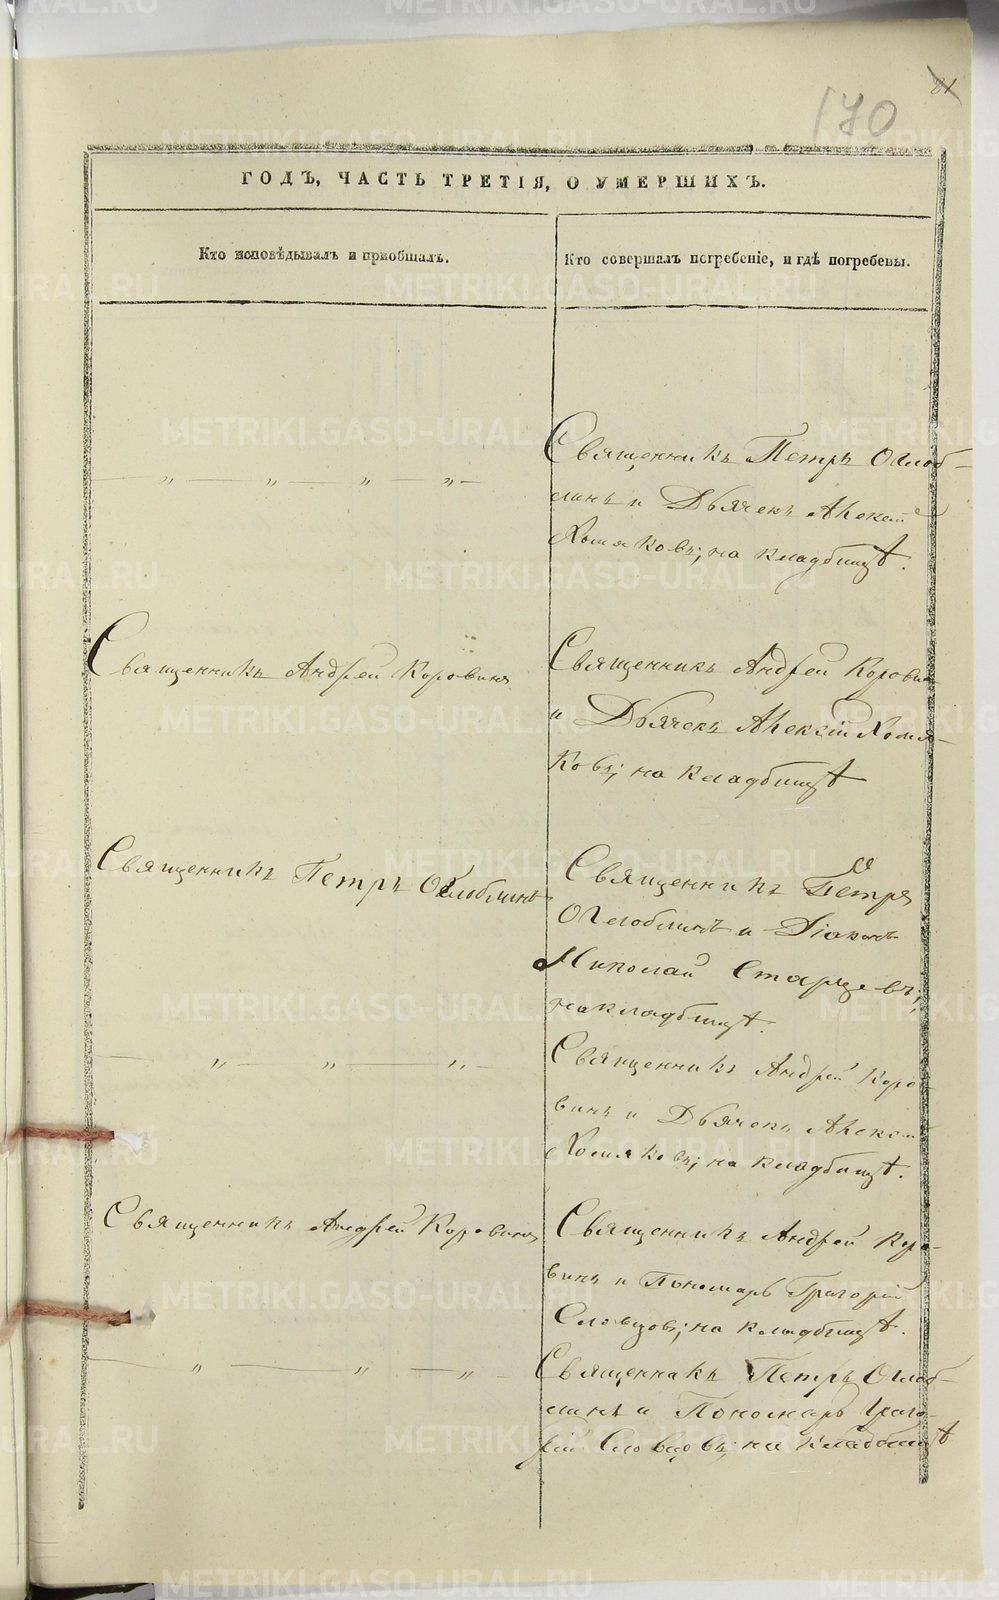 170
81
ГОДЪ, ЧАСТЬ ТРЕТІЯ, О УМЕРШИХЪ.
Кто исповѣдывалъ и пріобщалъ.
Кто совершалъ погребеніе, и гдѣ погребены.
— „ — „ — „ — „ —
Священникъ Петръ Оглоб-
линъ и Дьячекъ Алексѣй
Хомяковъ; на кладбищѣ.
Священникъ Андрей Коровинъ
Священникъ Андрей Коровинъ
и Дьячекъ Алексій Хомя-
ковъ; на кладбищѣ
Священникъ Петръ Оглоблинъ
Священникъ Петръ
Оглоблинъ и Діаконъ
Николай Старцевъ;
на кладбищѣ.
— „ — „ — „ —
Священникъ Андрей Коро-
винъ и Дьячекъ Алексѣй
Хомяковъ; на кладбищѣ.
Священникъ Андрей Коровинъ
Священникъ Андрей Коро-
винъ и Пономарь Григорій
Словцовъ; на кладбищѣ.
— „ — „ — „ —
Священникъ Петръ Оглоб-
линъ и Пономарь Григо-
рій Словцовъ; на кладбищѣ
METRIKI.GASO-URAL.RU